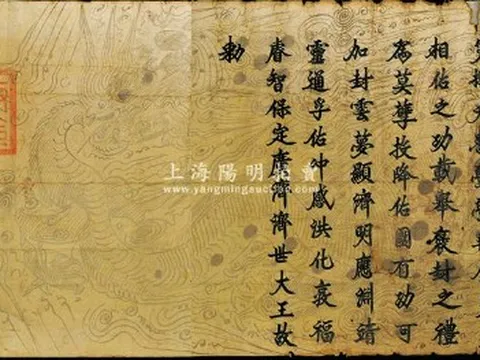 相佑之功載舉褒封之禮
為莫投降佑國有功可
加封雲夢顯濟明應淵靖
靈通孚佑冲感洪化裒福
睿智保定廣濟濟世大王故
勅
上海陽明拍賣
www.yangmingauction.com